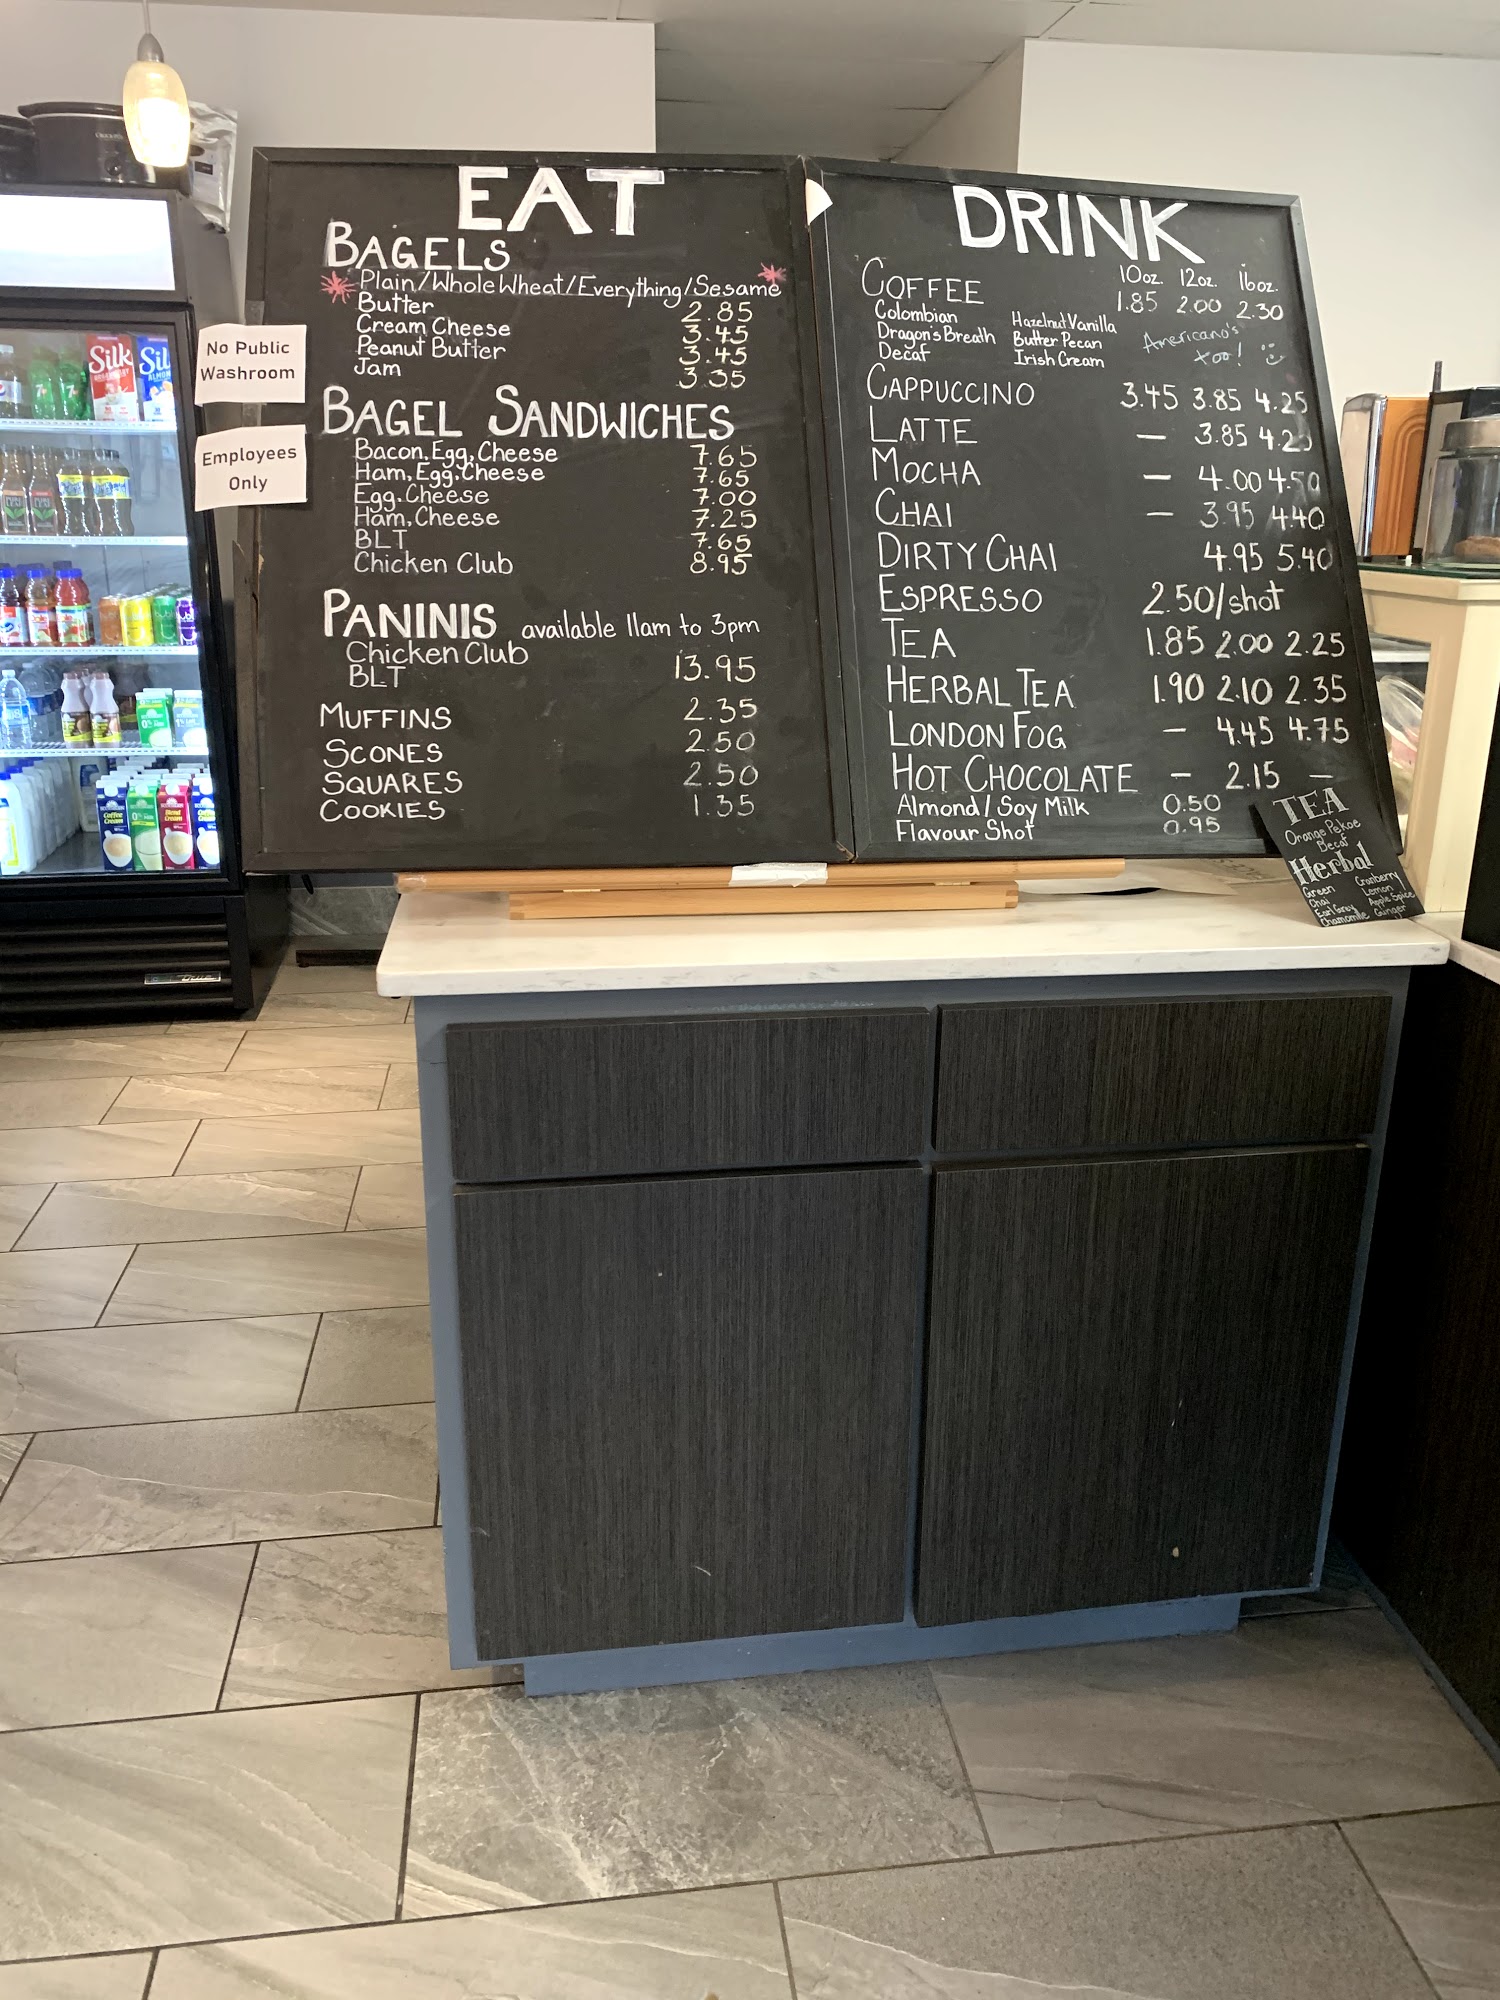 No Public
Washroom
Employees
Only
EAT
BAGELS
Plain/Whole Wheat/Everything/Sesame
Butter 2.85
Cream Cheese 3.45
Peanut Butter 3.45
Jam 3.35
BAGEL SANDWICHES
Bacon, Egg, Cheese 7.65
Ham, Egg, Cheese 7.65
Egg, Cheese 7.00
Ham, Cheese 7.25
BLT 7.65
Chicken Club 8.95
PANINIS available 11am to 3pm
Chicken Club
BLT 13.95
MUFFINS 2.35
SCONES 2.50
SQUARES 2.50
COOKIES 1.35
DRINK
10oz. 12oz. 16oz.
COFFEE 1.85 2.00 2.30
Colombian Hazelnut Vanilla
Dragon's Breath Butter Pecan
Decaf Irish Cream
Americano's
too!
CAPPUCCINO 3.45 3.85 4.25
LATTE — 3.85
MOCHA — 4.00 4.50
CHAI — 3.95 4.40
DIRTY CHAI 4.95 5.40
ESPRESSO 2.50/shot
TEA 1.85 2.00 2.25
HERBAL TEA 1.90 2.10 2.35
LONDON FOG — 4.45 4.75
HOT CHOCOLATE — 2.15 —
Almond/Soy Milk 0.50
Flavour Shot 0.95
TEA
Orange Pekoe
Decaf
Herbal
Green Cranberry
Chai Lemon
Earl Grey Apple Spice
Chamomile Ginger
Silk
Silk
Coffee
Cream
Blend
Cream
True